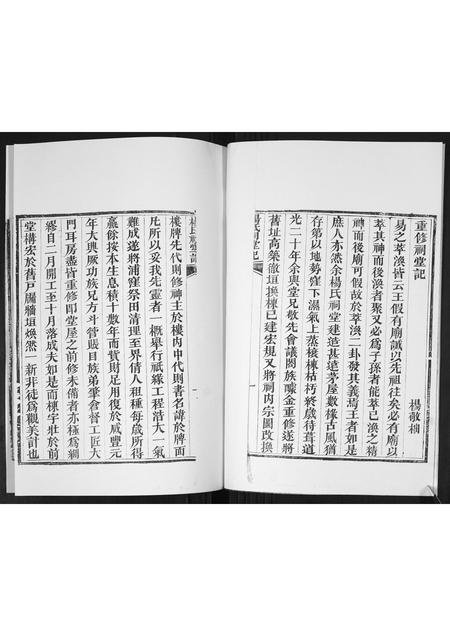 重修祠堂記
楊敬柟
易之萃渙皆云王假有廟誠以先祖往矣必有廟以
萃其神而後渙者聚又必為子孫者能萃已渙之精
神而後廟可假故於萃渙二卦發其義焉王者如是
庶人亦然余楊氏祠堂建造甚遠茅屋數椽古風猶
存第以地勢窪下濕氣上蒸棟枯朽終歲待葺道
光二十年余與堂兄敬先會議闔族醵金重修遂將
舊址高築徹垣換棟已建宏規又將祠內宗圖改換
楊氏祠堂記
樓牌先代則修神主於樓內中代則書名諱於牌面
凡所以妥我先靈者一概舉行祇緣工程浩大一氣
難成遂將浦窪祭田清理至界倩人租種每歲所得
贏餘按本生息積十數年而貲財足用復於咸豐元
年大興厥功族兄方斗管賬目族弟肇倉督工匠大
門耳房盡皆重修即堂屋之前修未備者亦極為綢
繆自二月開工至十月落成夫如是而棟宇壯於前
堂構宏於舊戶牖牆垣煥然一新非徒為觀美計也